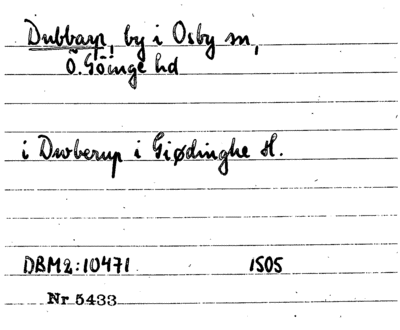 Dubbarp, by i Osby sn,
Ö. Göinge hd
i Dwberup i Giødinghe H.
DBM2:10471 1505
Nr 5433